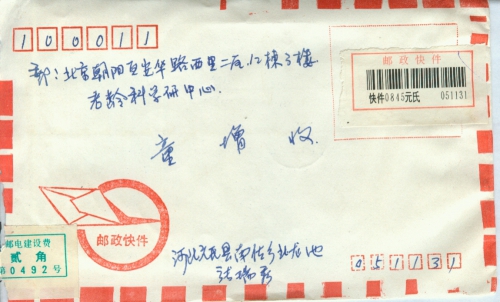 100011
邮政快件
寄：北京朝阳区光华路西里二区12栋3楼
快件0845元氏 051131
老龄科学研中心
童增 收
邮政快件
邮电建设费
贰角
第0492号
河北元氏县南佐乡北龙池
051131